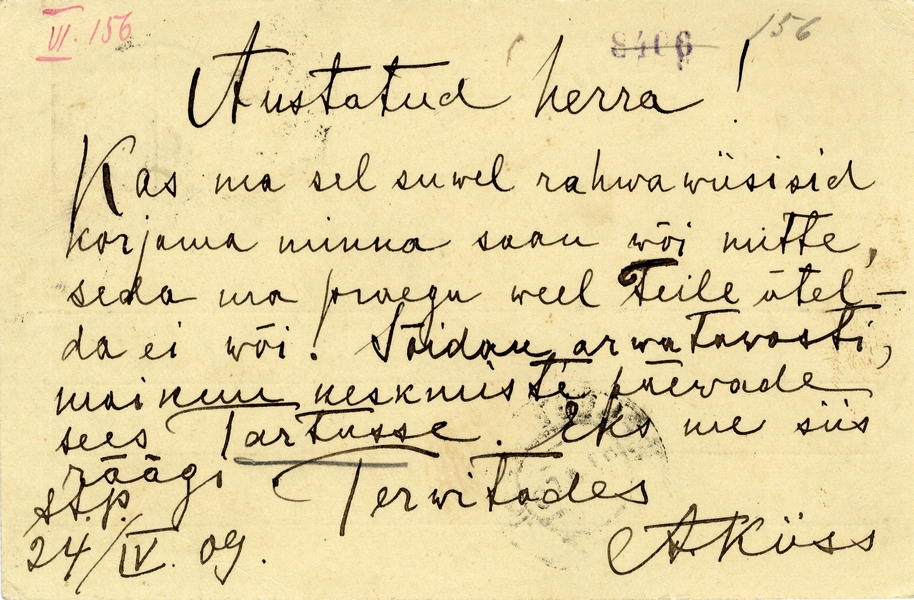 VI. 156
8406
156
Austatud herra!
Kas ma sel suwel rahwawiisisid
korjama minna saan wõi mitte,
seda ma praegu weel Teile ütel-
da ei wõi! Sõidan arwatawasti,
maikuu keskmiste päewade
sees Tartusse. Eks me siis
räägi Terwitades
St.p.
24/IV. 09.
AKüss